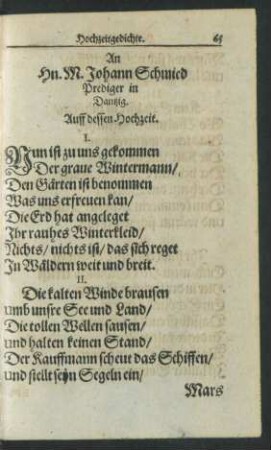 Hochzeitgedichte. 65
An
Hn. M. Johann Schmied
Prediger in
Dantzig.
Auff dessen Hochzeit.
I.
Nun ist zu uns gekommen
Der graue Wintermann/
Den Gärten ist benommen
Was uns erfreuen kan/
Die Erd hat angeleget
Ihr rauhes Winterkleid/
Nichts/ nichts ist/ das sich reget
In Wäldern weit und breit.
II.
Die kalten Winde brausen
umb unsre See und Land/
Die tollen Wellen sausen/
und halten keinen Stand/
Der Kauffmann scheut das Schiffen/
und stellt seyn Segeln ein/
Mars